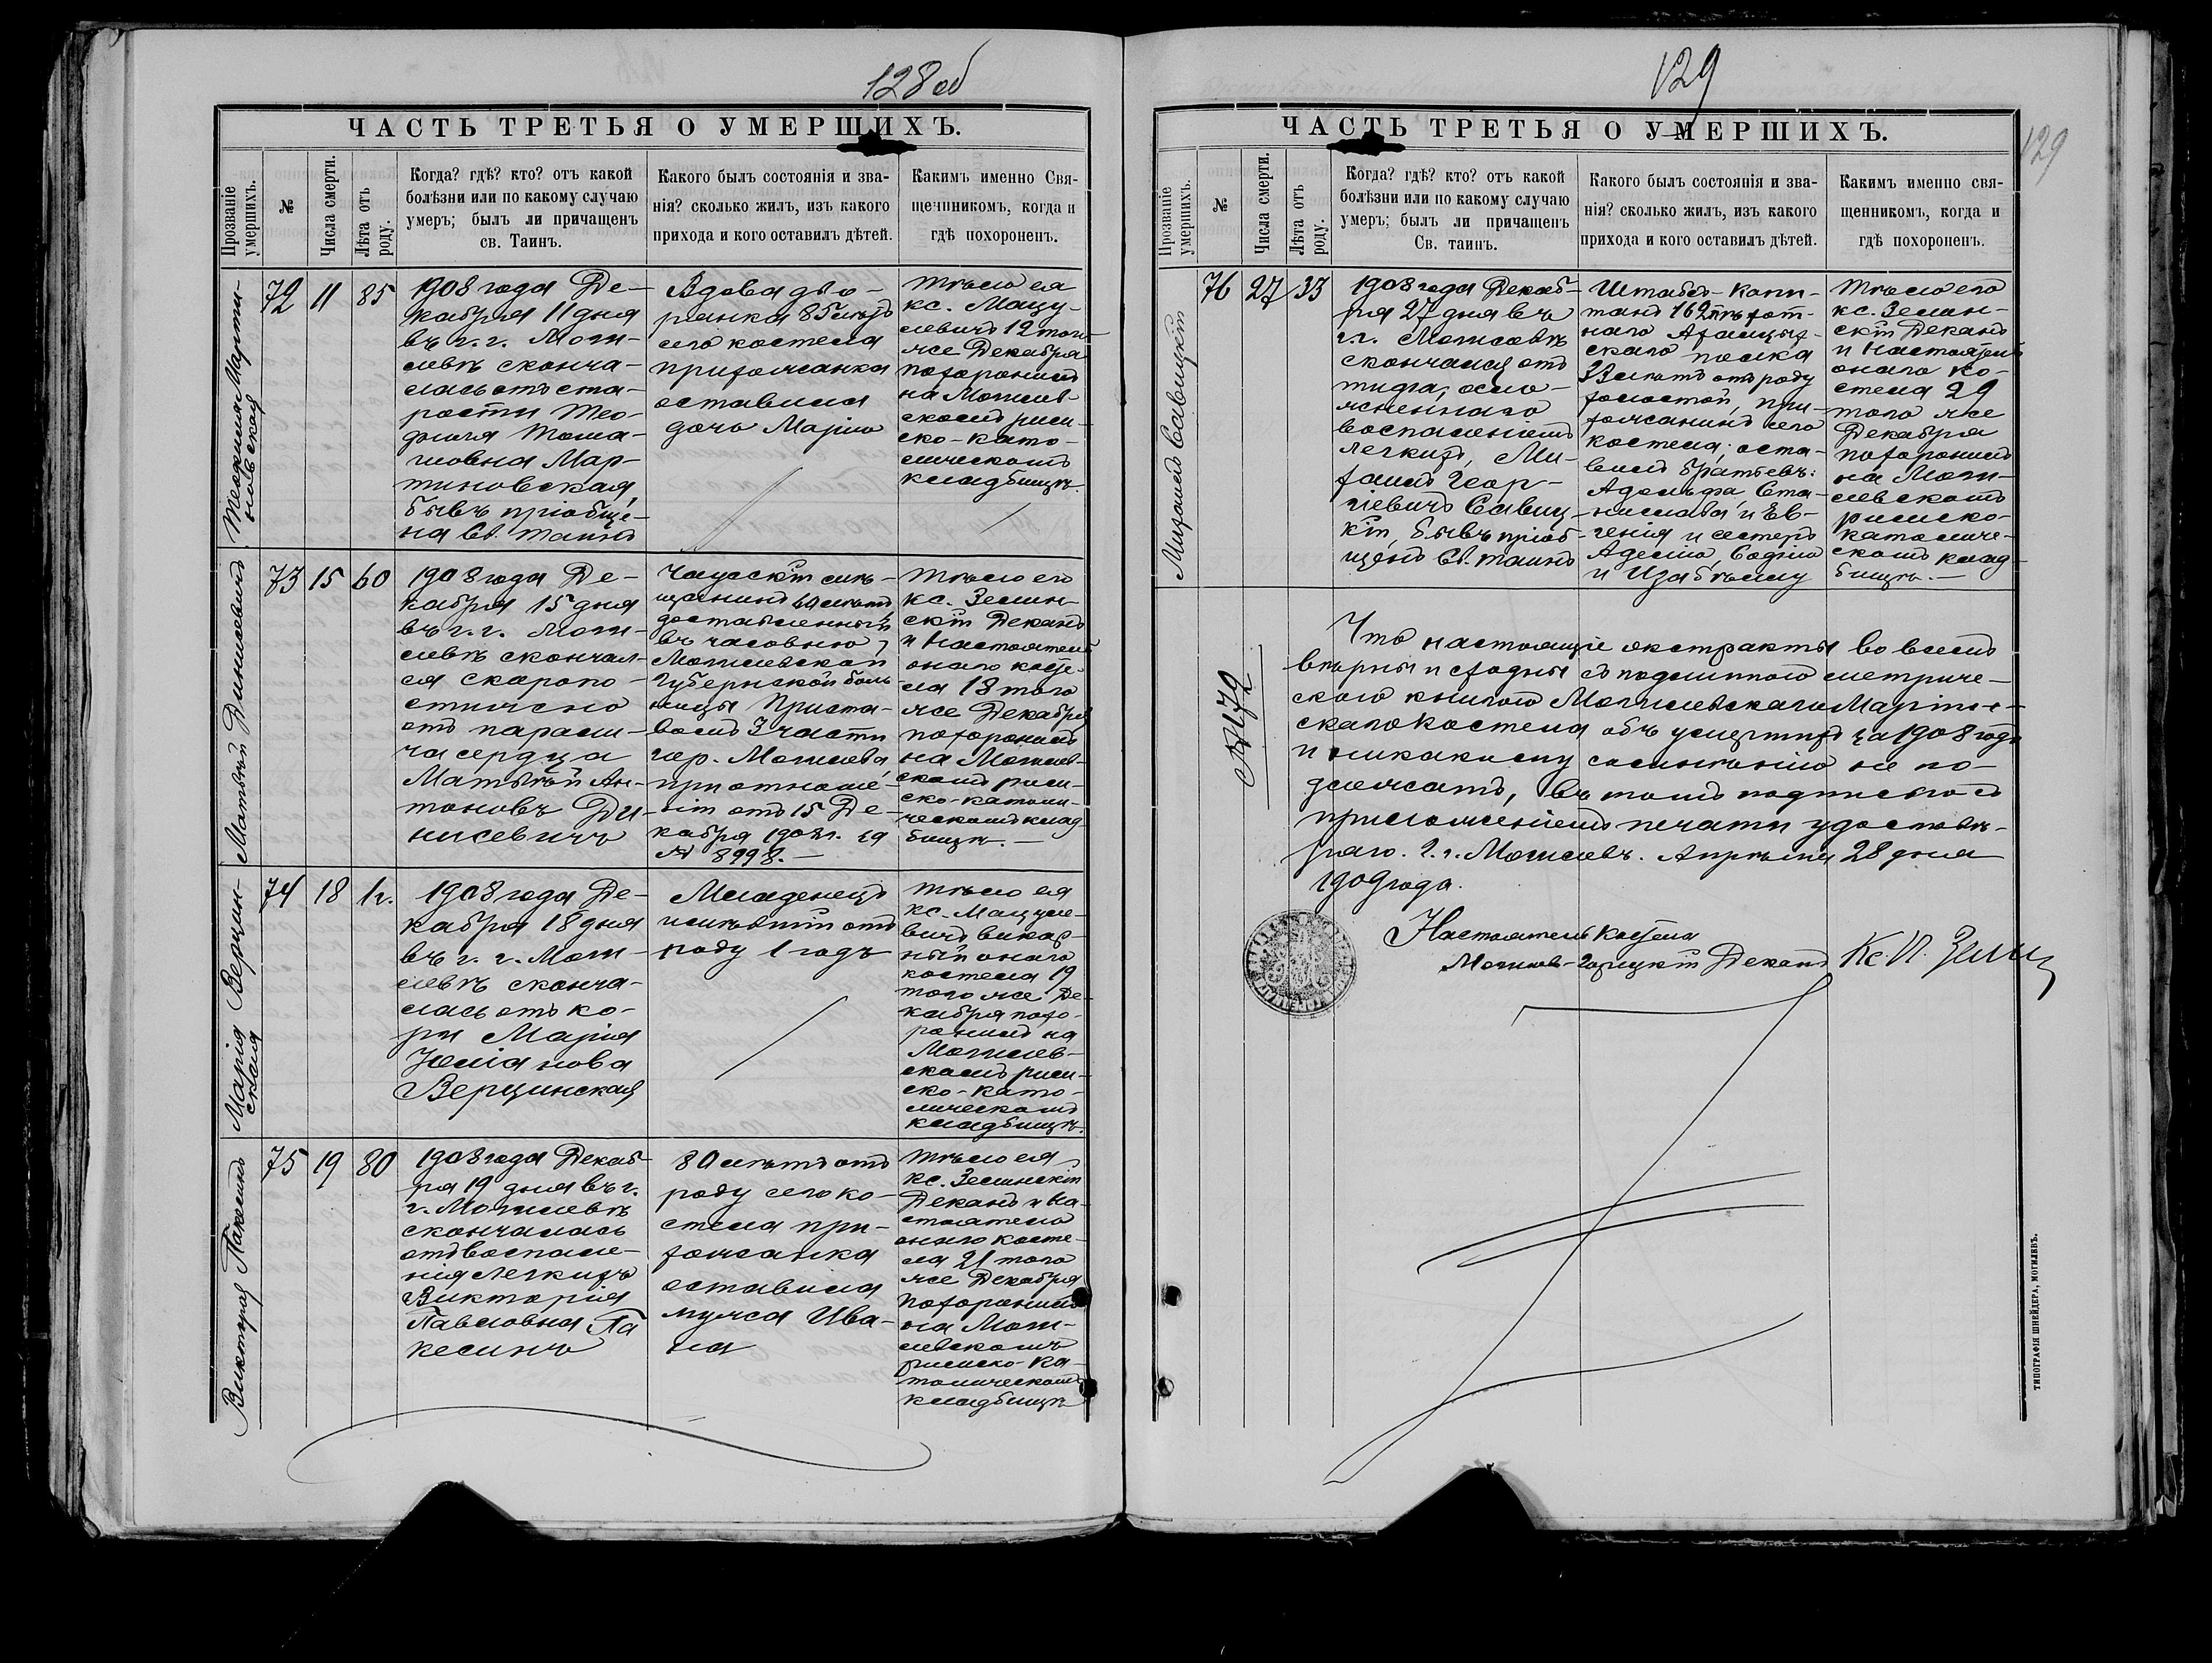 128 об
ЧАСТЬ ТРЕТЬЯ О УМЕРШИХЪ.
Прозваніе умершихъ.
№
Числа смерти.
Лѣта отъ роду.
Когда? гдѣ? кто? отъ какой
болѣзни или по какому случаю
умеръ; былъ ли причащенъ
св. Таинъ.
Какого былъ состоянія и зва-
нія? сколько жилъ, изъ какого
прихода и кого оставилъ дѣтей.
Какимъ именно Свя-
щенникомъ, когда и
гдѣ похороненъ.
Теофилія Марти-
новская
72
11
85
1908 года Де-
кабря 11 дня
въ г. г. Моги-
левѣ сконча-
лась отъ ста-
рости Тео-
филія Тома-
шовна Мар-
тиновская,
бывъ пріобще-
на Св. таинъ
Вдова дво-
рянка 85 лѣтъ
сего костела
прихожанка
оставила
дочь Марію
Тѣло ея
кс. Мацу-
левичъ 12 того
же Декабря
похоронилъ
на Могилев-
скомъ рим-
ско-като-
лическомъ
кладбищѣ.
Матвѣй Динисевичъ
73
15
60
1908 года Де-
кабря 15 дня
въ г. г. Моги-
левѣ скончал-
ся скоропо-
стижно
отъ парали-
ча сердца
Матвѣй Ан-
тоновъ Ди-
нисевичъ
Чаусскій мѣ-
щанинъ 60 лѣтъ
доставленный
въ часовню
Могилевской
Губернской боль-
ницы Приста-
вомъ 3 части
гор. Могилева,
при отноше-
ніи отъ 15 Де-
кабря 1908 г. за
№ 8998.—
Тѣло его
кс. Зелин-
скій Деканъ
и Настоятель
онаго косте-
ла 18 того
же Декабря
похоронилъ
на Могилев-
скомъ рим-
ско-католи-
ческомъ клад-
бищѣ.—
Марія Верцин-
ская
74
18
1 г.
1908 года Де-
кабря 18 дня
въ г. г. Моги-
левѣ сконча-
лась отъ ко-
ри Марія
Юліанова
Верцинская
Младенецъ
имѣвшій отъ
роду 1 годъ
Тѣло ея
кс. Мацуле-
вичъ викар-
ный онаго
костела 19
того же Де-
кабря похо-
ронилъ на
Могилев-
скомъ рим-
ско-като-
лическомъ
кладбищѣ.
Викторія Пакелинъ
75
19
80
1908 года Декаб-
ря 19 дня въ г.
г. Могилевѣ
скончалась
отъ воспале-
нія легкихъ
Викторія
Павловна Па
80 лѣтъ отъ
роду сего ко-
стела при-
хожанка
оставила
мужа Ива-
на
Тѣло ея
кс. Зелинскій
Деканъ и На-
стоятель
онаго косте-
ла 21 того
же Декабря
похоронилъ
на Моги-
левскомъ
римско-ка-
толическомъ
кладбищѣ
129
129
ЧАСТЬ ТРЕТЬЯ О УМЕРШИХЪ.
Прозваніе умершихъ.
№
Числа смерти.
Лѣта отъ роду.
Когда? гдѣ? кто? отъ какой
болѣзни или по какому случаю
умеръ; былъ ли причащенъ
Св. таинъ.
Какого былъ состоянія и зва-
нія? сколько жилъ, изъ какого
прихода и кого оставилъ дѣтей.
Какимъ именно свя-
щенникомъ, когда и
гдѣ похороненъ.
Михаилъ Савицкій
76
27
33
1908 года Декаб-
ря 27 дня въ
г. г. Могилевѣ
скончался отъ
тифа, осло-
жненнаго
воспаленіемъ
легкихъ, Ми-
хаилъ Геор-
гіевичъ Савиц-
кій, бывъ пріоб-
щенъ Св. таинъ
Штабсъ-Капи-
танъ 162 пѣхот-
наго Ахалцых-
скаго полка
33 лѣтъ отъ роду
холостой, при-
хожанинъ сего
костела; оста-
вилъ братьевъ:
Адольфа, Ста-
нислава и Ев-
генія и сестеръ
Аделію, Софію
и Изабеллу
Тѣло его
кс. Зелин-
скій Деканъ
и Настоятель
онаго ко-
стела 29
того же
Декабря
похоронилъ
на Моги-
левскомъ
римско-
католиче-
скомъ клад-
бищѣ.—
№ 172
Что настоящіе экстракты во всемъ
вѣрны и сходны съ подлинною метриче-
скою книгою Могилевскаго Маріин-
скаго Костела объ умершихъ за 1908 годъ
и никакому сомнѣнію не по-
длежатъ, въ томъ подписью съ
приложеніемъ печати удостовѣ-
ряю. Г. г. Могилевъ. Апрѣля 28 дня
1909 года.
Настоятель Костела
Могилев-Горецкій Деканъ Кс. П.
ТИПОГРАФІЯ ШНЕЙДЕРА, МОГИЛЕВЪ.